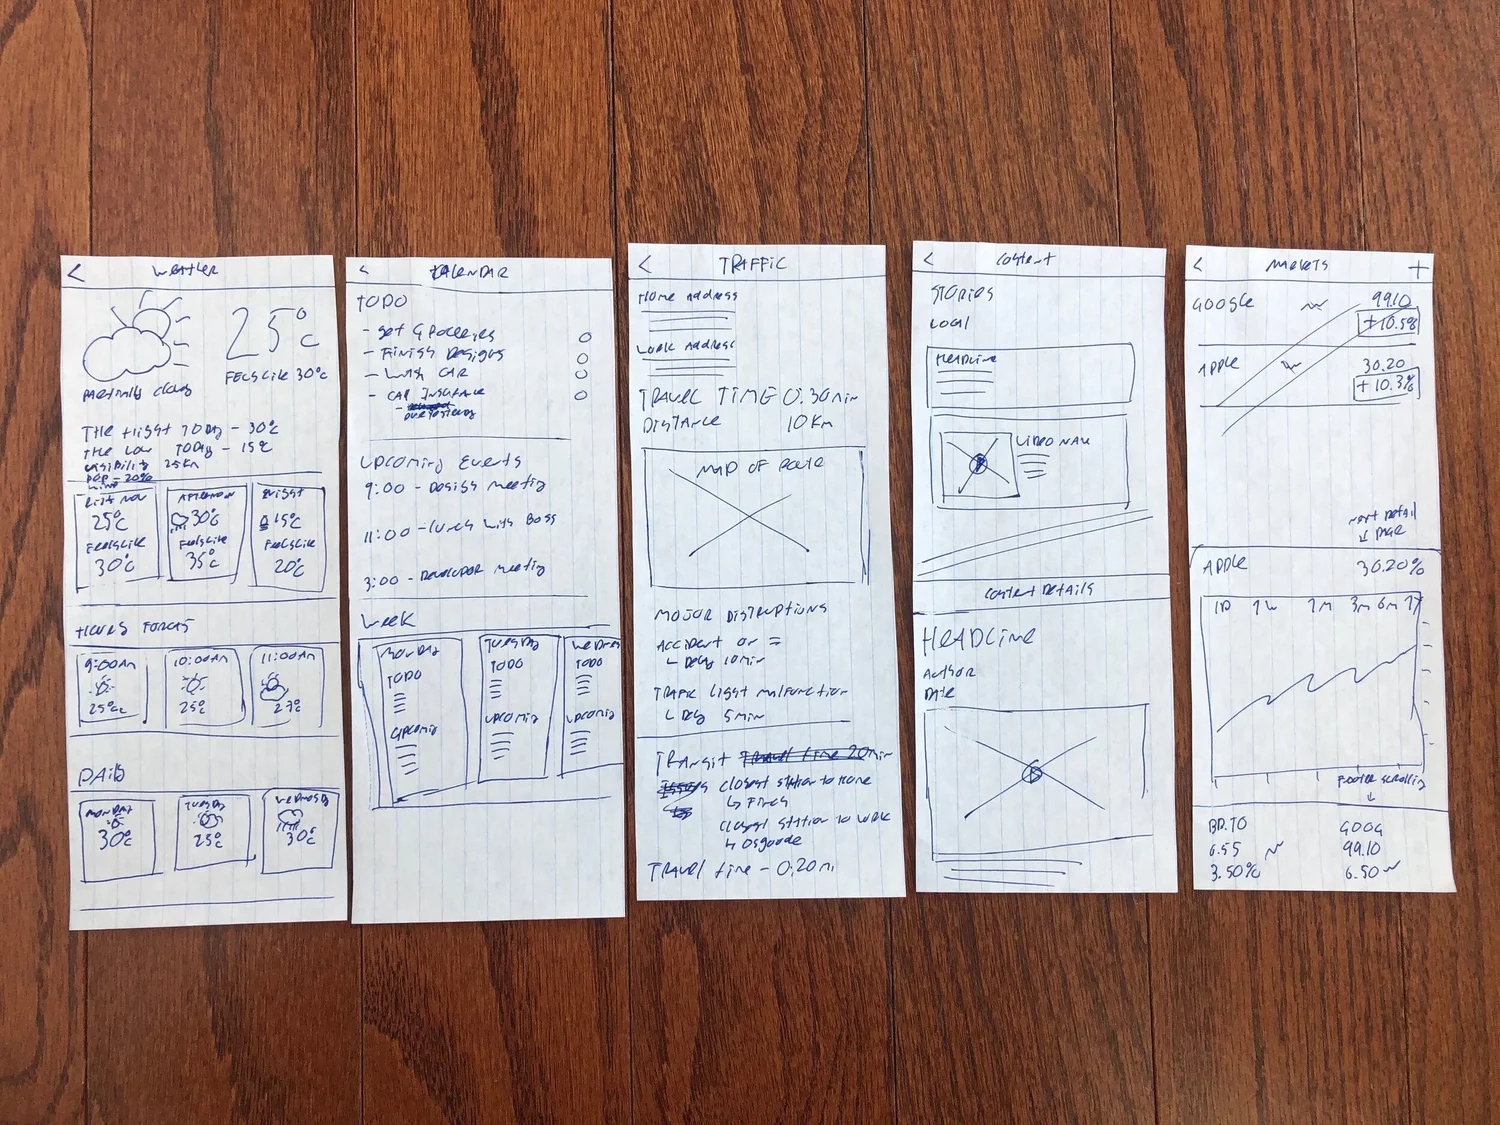 <
WEATHER
25°C
FEELS LIKE 30°C
PARTIALLY CLOUDY
THE HIGHT TODAY - 30°C
THE LOW TODAY - 15°C
VISIBILITY 25KM
POP - 20%
WIND
RIGHT NOW
25°C
FEELS LIKE
30°C
AFTERNOON
30°C
FEELS LIKE
35°C
15°C
FEELS LIKE
20°C
9:00AM
25°C
10:00AM
25°C
11:00AM
27°C
DAILY
MONDAY
30°C
TUESDAY
25°C
30°C
<
CALENDAR
TODO
- GET GROCERIES
- FINISH DESIGNS
- WASH CAR
- CAR INSURANCE
UPCOMING EVENTS
9:00 - DESIGN MEETING
11:00 - LUNCH WITH BOSS
3:00 - DEVELOPER MEETING
WEEK
MONDAY
TODO
UPCOMING
TUESDAY
TODO
UPCOMING
WEDNES
TODO
UPCOMING
<
TRAFFIC
HOME ADDRESS
WORK ADDRESS
TRAVEL TIME 0:30MIN
DISTANCE 10KM
MAP OF ROUTE
MAJOR DISTRUPTIONS
ACCIDENT ON
DELAY 10MIN
TRAFIC LIGHT MALFUNCTION
DELAY 5MIN
TRANSIT TRAVEL TIME 20MIN
ISSUES CLOSEST STATION TO HOME
FINCH
CLOSEST STATION TO WORK
OSGOODE
TRAVEL TIME - 0:20MI
<
CONTENT
STORIES
LOCAL
HEADLINE
VIDEO NAM
CONTENT DETAILS
HEADLINE
AUTHOR
DATE
<
MARKETS
+
GOOGLE 99.10
+10.5%
APPLE 30.20
+10.3%
DETAIL
PAGE
APPLE 30.20%
1D 1W 1M 3M 6M 1Y
FOOTER SCROLLING
BD.TO
6.55
3.50%
GOOG
99.10
6.50